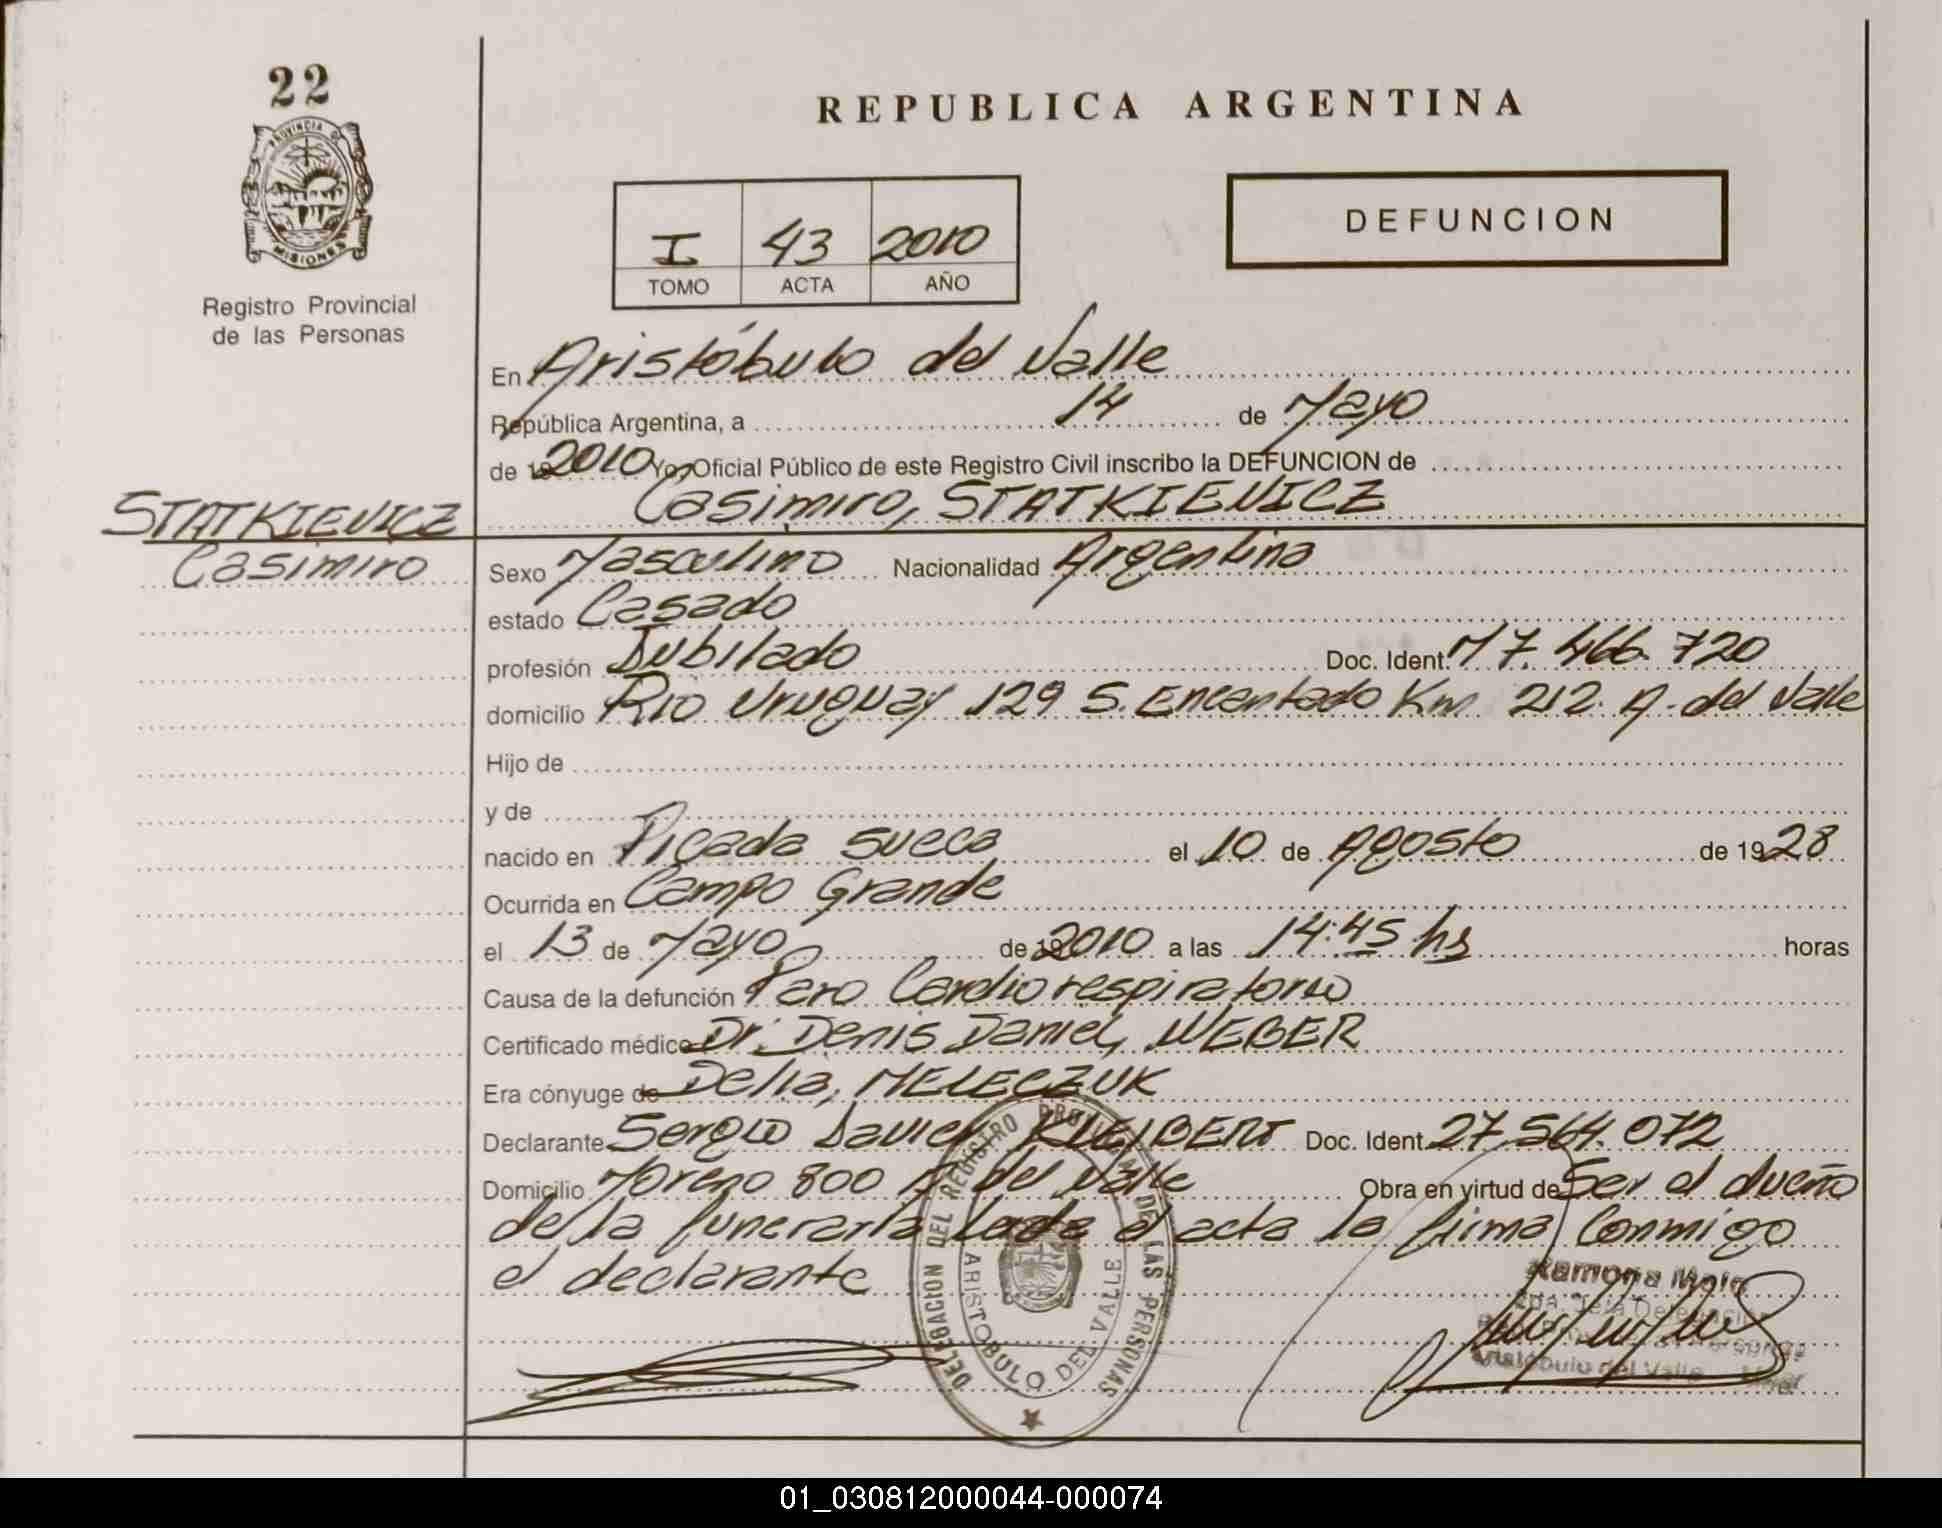 22
PROVINCIA DE
MISIONES
Registro Provincial
de las Personas
REPUBLICA ARGENTINA
I 43 2010
TOMO ACTA AÑO
DEFUNCION
En Aristóbulo del Valle
República Argentina, a 14 de Mayo
de 2010 Yo, Oficial Público de este Registro Civil inscribo la DEFUNCION de
Casimiro, STATKIEVICZ
STATKIEVICZ
Casimiro
Sexo Masculino Nacionalidad Argentina
estado Casado
profesión Jubilado Doc. Ident. M 7.466.720
domicilio Rio Uruguay 129 S. Encantado Km 212. A. del Valle
Hijo de
y de
nacido en Picada Sueca el 10 de Agosto de 1928
Ocurrida en Campo Grande
el 13 de Mayo de 2010 a las 14:45 hs horas
Causa de la defunción Paro Cardiorespiratorio
Certificado médico Dr. Denis Daniel, WEBER
Era cónyuge de Delia, MELECZUK
Declarante Sergio Javier KLEIBERT Doc. Ident. 27.564.072
Domicilio Moreno 800 A del Valle Obra en virtud de Ser el dueño
de la funeraria Leida el acta la firma Conmigo
el declarante
DELEGACION DEL REGISTRO PROVINCIAL DE LAS PERSONAS
ARISTOBULO DEL VALLE
Ramona
Aristóbulo del Valle
01_030812000044-000074